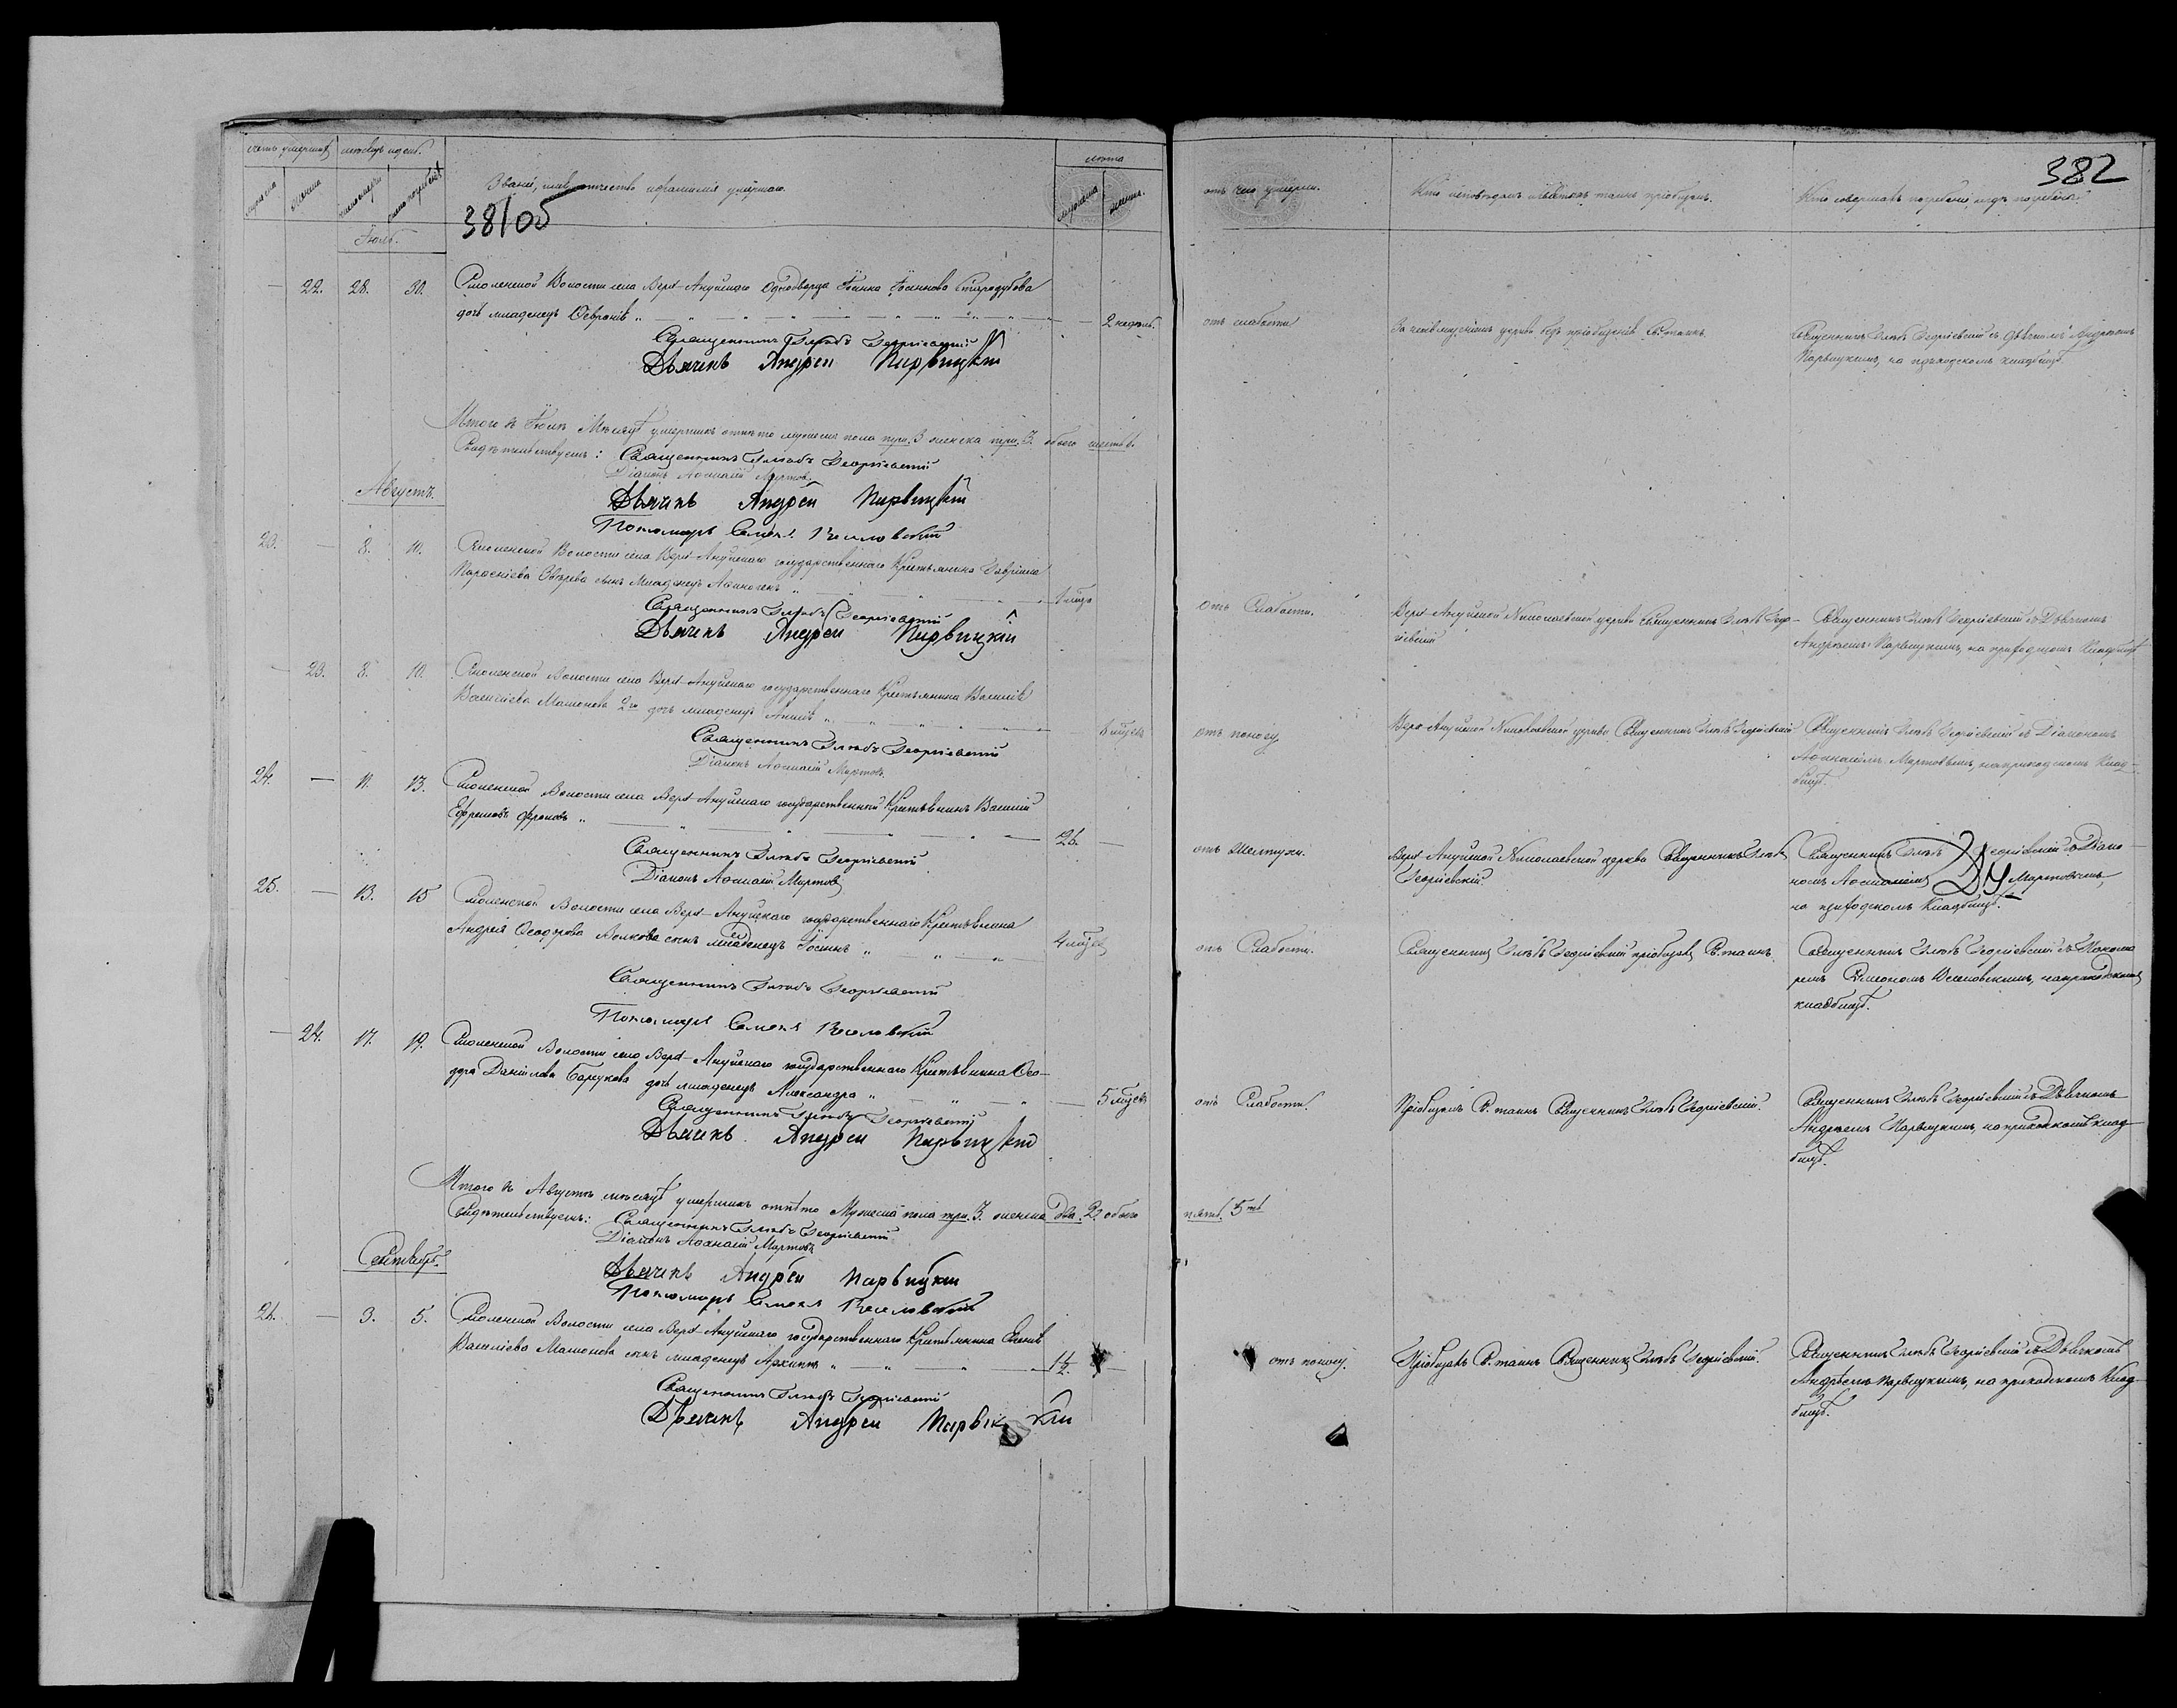 счетъ умершихъ
мѣсяцъ и день.
мужеска
женска
число смерти
число погребенія
Званіе, имя, отчество и фамилія умершаго.
381 об
лѣта
мужеска
женска.
отъ чего умерли.
Кто исповѣдалъ и Святыхъ таинъ пріобщалъ.
Кто совершалъ погребеніе, и гдѣ погребены.
382
Іюль.
— 22. 28. 30. Смоленской Волости села Верх-Ануйскаго Однодворца Іоанна Іоаннова Стародубова
дочь младенецъ Февронія — 2 недѣль.
отъ слабости
За неимуществомъ церкви безъ пріобщенія Св. таинъ.
Священникъ Глѣбъ Георгіевскій съ Дьячкомъ Андреемъ
Парвицкимъ, на приходскомъ кладбищѣ.
Священникъ Глѣбъ Георгіевскій
Дьячекъ Андрей Парвицкій
Итого въ Іюлѣ Мѣсяцѣ умершихъ отпѣто мужеска пола три. 3 женска три. 3. обоего шесть 6.
Свидѣтельствуемъ: Священникъ Глѣбъ Георгіевскій
Діаконъ Афанасій Мартовъ
Дьячекъ Андрей Парвицкій
Пономарь Семенъ Веселовскій
Августъ.
23. — 8. 10. Смоленской Волости села Верх-Ануйскаго государственнаго Крестьянина Гавріила
сынъ младенецъ Афиногенъ
отъ Слабости.
Верх-Ануйской Николаевской церкви Священникъ Глѣбъ Геор-
гіевскій
Священникъ Глѣбъ Георгіевскій съ Дьячкомъ
Андреемъ Парвицкимъ, на приходскомъ Кладбищѣ
Священникъ Глѣбъ Георгіевскій
Дьячекъ Андрей Парвицкій
— 23. 8. 10. Смоленской Волости села Верх-Ануйскаго государственнаго Крестьянина Василія
Васильева Машонова 2го дочь младенецъ Анна
отъ поносу
Верх-Ануйской Николаевской церкви Священникъ Глѣбъ Георгіевскій
Священникъ Глѣбъ Георгіевскій съ Діакономъ
Афанасіемъ Мартовымъ, на приходскомъ Клад-
бищѣ.
Священникъ Глѣбъ Георгіевскій
Діаконъ Афанасій Мартовъ.
24. — 11. 13. Смоленской Волости села Верх-Ануйскаго государственный Крестьянинъ Василій
Ефремовъ Фроловъ — 26. —
отъ желтухи.
Верх-Ануйской Николаевской церкви Священникъ Глѣбъ
Георгіевскій.
Священникъ Глѣбъ Георгіевскій съ Діако-
номъ Афанасіемъ Мартовымъ,
на приходскомъ Кладбищѣ.
Священникъ Глѣбъ Георгіевскій
Діаконъ Афанасій Мартовъ
25. — 13. 15 Смоленской Волости села Верх-Ануйскаго государственнаго Крестьянина
Андрея Ѳеодорова Волкова сынъ младенецъ Іосифъ — 4 мѣсяц
отъ Слабости.
Священникъ Глѣбъ Георгіевскій пріобщалъ Св. таинъ.
Священникъ Глѣбъ Георгіевскій съ Понома
ремъ Симеономъ Веселовскимъ, на приходскомъ
кладбищѣ.
Священникъ Глѣбъ Георгіевскій
Пономарь Семенъ Веселовскій
— 24. 17. 19. Смоленской Волости села Верх-Ануйскаго государственнаго Крестьянина Ѳео-
дора Данилова дочь младенецъ Александра — 5 мѣсяц
отъ Слабости.
Пріобщалъ Св. таинъ Священникъ Глѣбъ Георгіевскій.
Священникъ Глѣбъ Георгіевскій съ Дьячкомъ
Андреемъ Парвицкимъ, на приходскомъ клад-
бищѣ.
Священникъ Глѣбъ Георгіевскій
Дьячекъ Андрей Парвицкій
Итого въ Августѣ мѣсяцѣ умершихъ отпѣто Мужеска пола три. 3. женска два. 2. обоего пять. 5ть
Свидѣтельствуемъ: Священникъ Глѣбъ Георгіевскій
Діаконъ Афанасій Мартовъ
Дьячекъ Андрей Парвицкій
Пономарь Семенъ Веселовскій
Сентябрь.
26. — 3. 5. Смоленской Волости села Верх-Ануйскаго государственнаго Крестьянина
Васильева Машонова сынъ младенецъ Архипъ — 1½. —
отъ поносу.
Пріобщалъ Св. таинъ Священникъ Глѣбъ Георгіевскій.
Священникъ Глѣбъ Георгіевскій съ Дьячкомъ
Андреемъ Парвицкимъ, на приходскомъ Клад-
бищѣ.
Священникъ Глѣбъ Георгіевскій
Дьячекъ Андрей Парвицкій